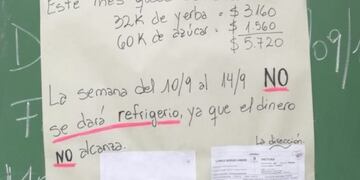 Este mes
32K de yerba = $3.160
60K de azúcar = $1.560
$5.720
La semana del 10/9 al 14/9 NO
se dará refrigerio, ya que el dinero
NO alcanza.
La dirección.
D
F
09/